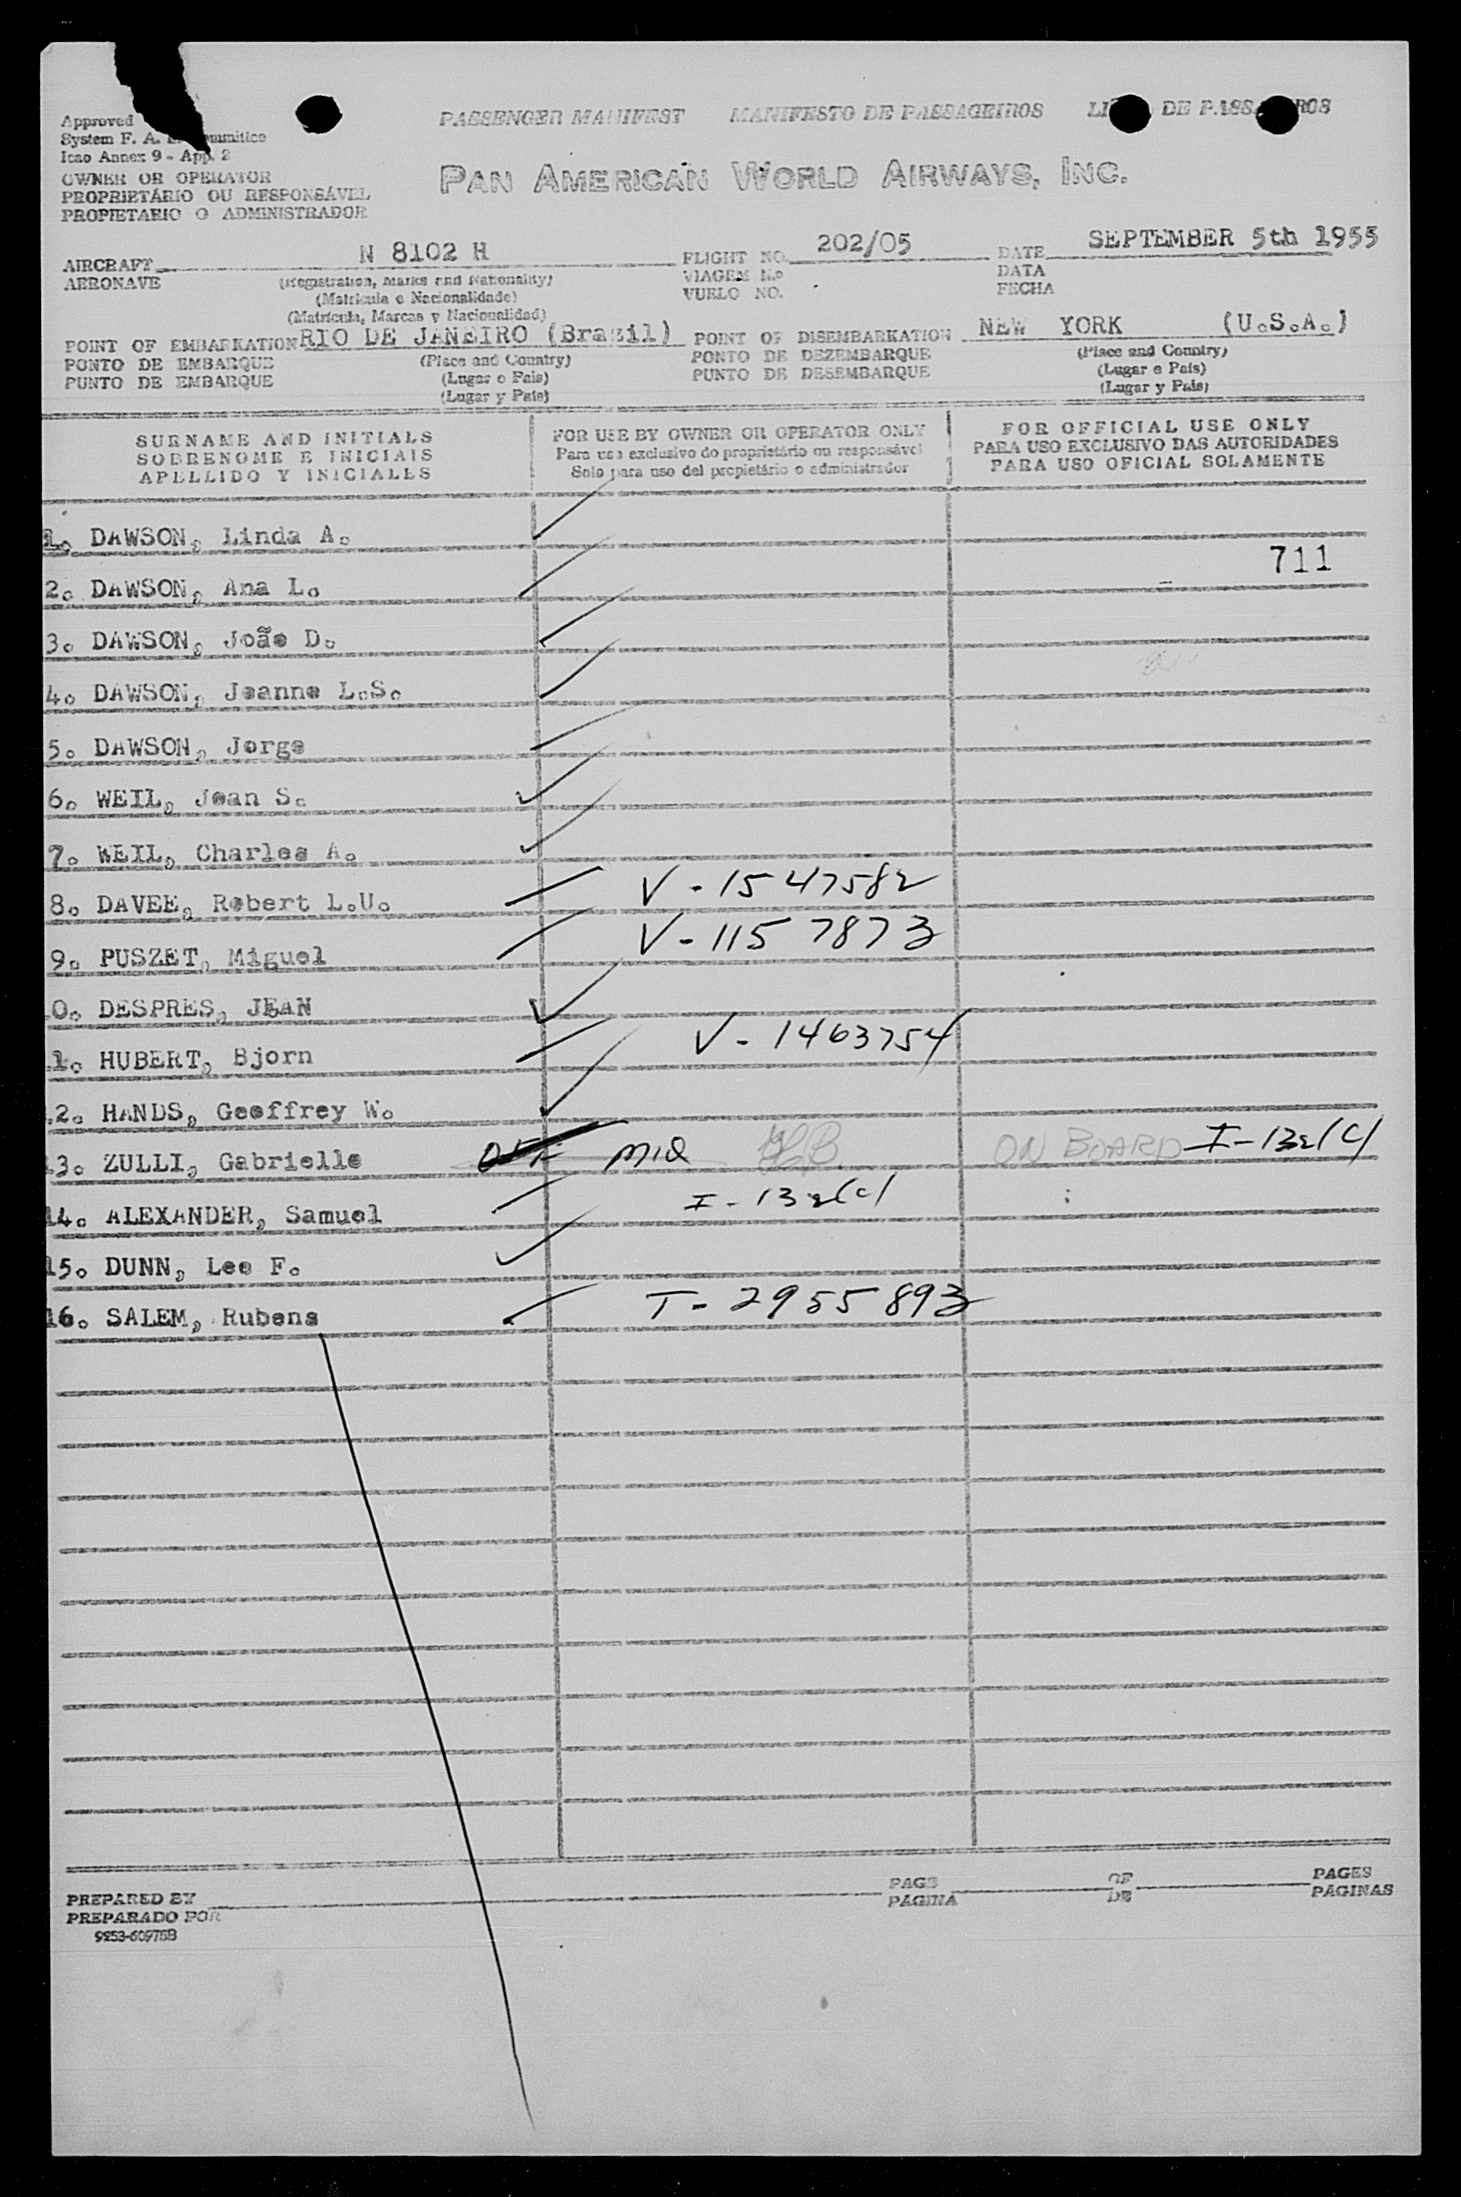 PASSENGER MANIFEST MANIFESTO DE PASSAGEIROS DE
Approved
System F. A.
Icao Annex 9 - App. 2
OWNER OR OPERATOR
PROPRIETÁRIO OU RESPONSÁVEL
PROPIETARIO O ADMINISTRADOR
PAN AMERICAN WORLD AIRWAYS, INC.
AIRCRAFT N 8102 H FLIGHT NO. 202/05 DATE SEPTEMBER 5th 1955
AERONAVE (Registration, Marks and Nationality) VIAGEM N.o DATA
(Matrícula e Nacionalidade) VUELO NO. FECHA
(Matrícula, Marcas y Nacionalidad)
POINT OF EMBARKATION RIO DE JANEIRO (Brazil) POINT OF DISEMBARKATION NEW YORK (U.S.A.)
PONTO DE EMBARQUE (Place and Country) PONTO DE DEZEMBARQUE (Place and Country)
PUNTO DE EMBARQUE (Lugar e Pais) PUNTO DE DESEMBARQUE (Lugar e Pais)
(Lugar y Pais) (Lugar y Pais)
SURNAME AND INITIALS FOR USE BY OWNER OR OPERATOR ONLY FOR OFFICIAL USE ONLY
SOBRENOME E INICIAIS Para uso exclusivo do proprietário ou responsável PARA USO EXCLUSIVO DAS AUTORIDADES
APELLIDO Y INICIALES Solo para uso del propietário o administrador PARA USO OFICIAL SOLAMENTE
1. DAWSON, Linda A.
711
2. DAWSON, Ana L.
3. DAWSON, João D.
4. DAWSON, Jeanne L.S.
5. DAWSON, Jorge
6. WEIL, Jean S.
7. WEIL, Charles A.
8. DAVEE, Robert L.U. V-1547582
9. PUSZET, Miguel V-1157873
0. DESPRES, JEAN
1. HUBERT, Bjorn V-1463754
.2. HANDS, Geoffrey W.
3. ZULLI, Gabrielle OFF MIA ON BOARD I-132(C)
14. ALEXANDER, Samuel I-132(C)
15. DUNN, Lee F.
16. SALEM, Rubens T-2955893
PREPARED BY PAGE OF PAGES
PREPARADO POR PAGINA DE PAGINAS
9253-60975B